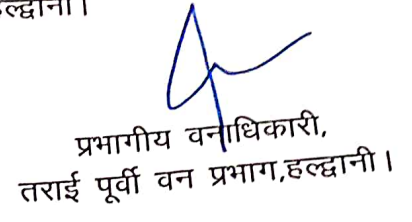 हल्द्वानी।
प्रभागीय वनाधिकारी,
तराई पूर्वी वन प्रभाग,हल्द्वानी।